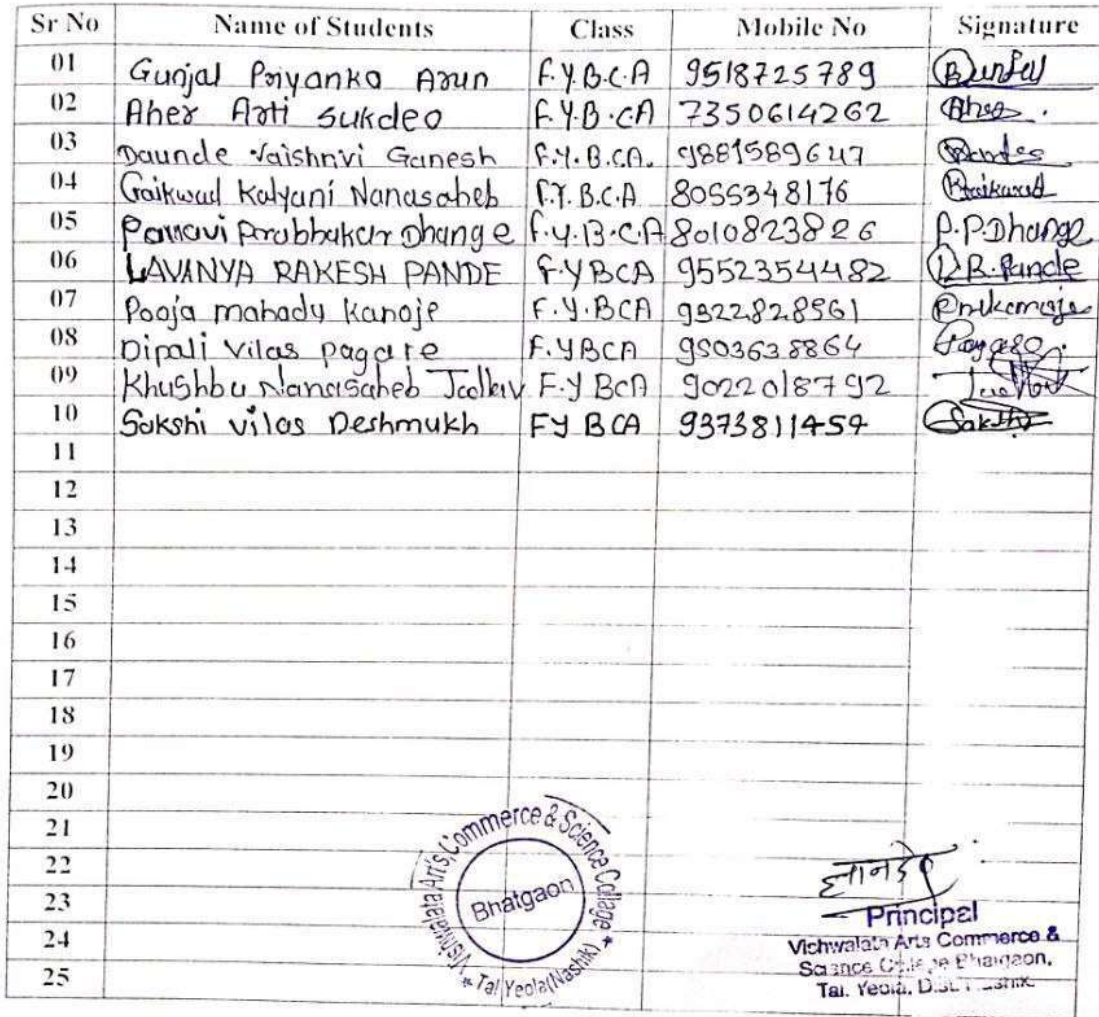 Sr No Name of Students Class Mobile No Signature
01 Gunjal Priyanka Arun F.Y.B.C.A 9518725789 Gunjal
02 Aher Arti sukdeo F.Y.B.CA 7350614262 Aher
03 Daunde Vaishnvi Ganesh F.Y.B.CA. 9881589647
04 Gaikwad Kalyani Nanasaheb F.Y.B.C.A 8055348176 Gaikwad
05 Prabhakar Dhange F.Y.B.C.A 8010823826 P.P.Dhange
06 LAVANYA RAKESH PANDE F.Y BCA 9552354482 L.R.Pande
07 Pooja mahadu Kanoje F.Y.BCA 9322828561
08 Dipali vilas pagare F.YBCA 9503638864 Pagare
09 Khushbu Nanasaheb Jadhav F.Y BCA 9022018792
10 Sakshi vilas Deshmukh FY BCA 9373811457 Sakshi
11
12
13
14
15
16
17
18
19
20
21
22
23
24
25
Vishwalata Art's, Commerce & Science College
Bhatgaon
Tal Yeola(Nashik)
Principal
Vichwalata Arts Commerce &
Science College Bhatgaon,
Tal. Yeola, Dist. Nashik.